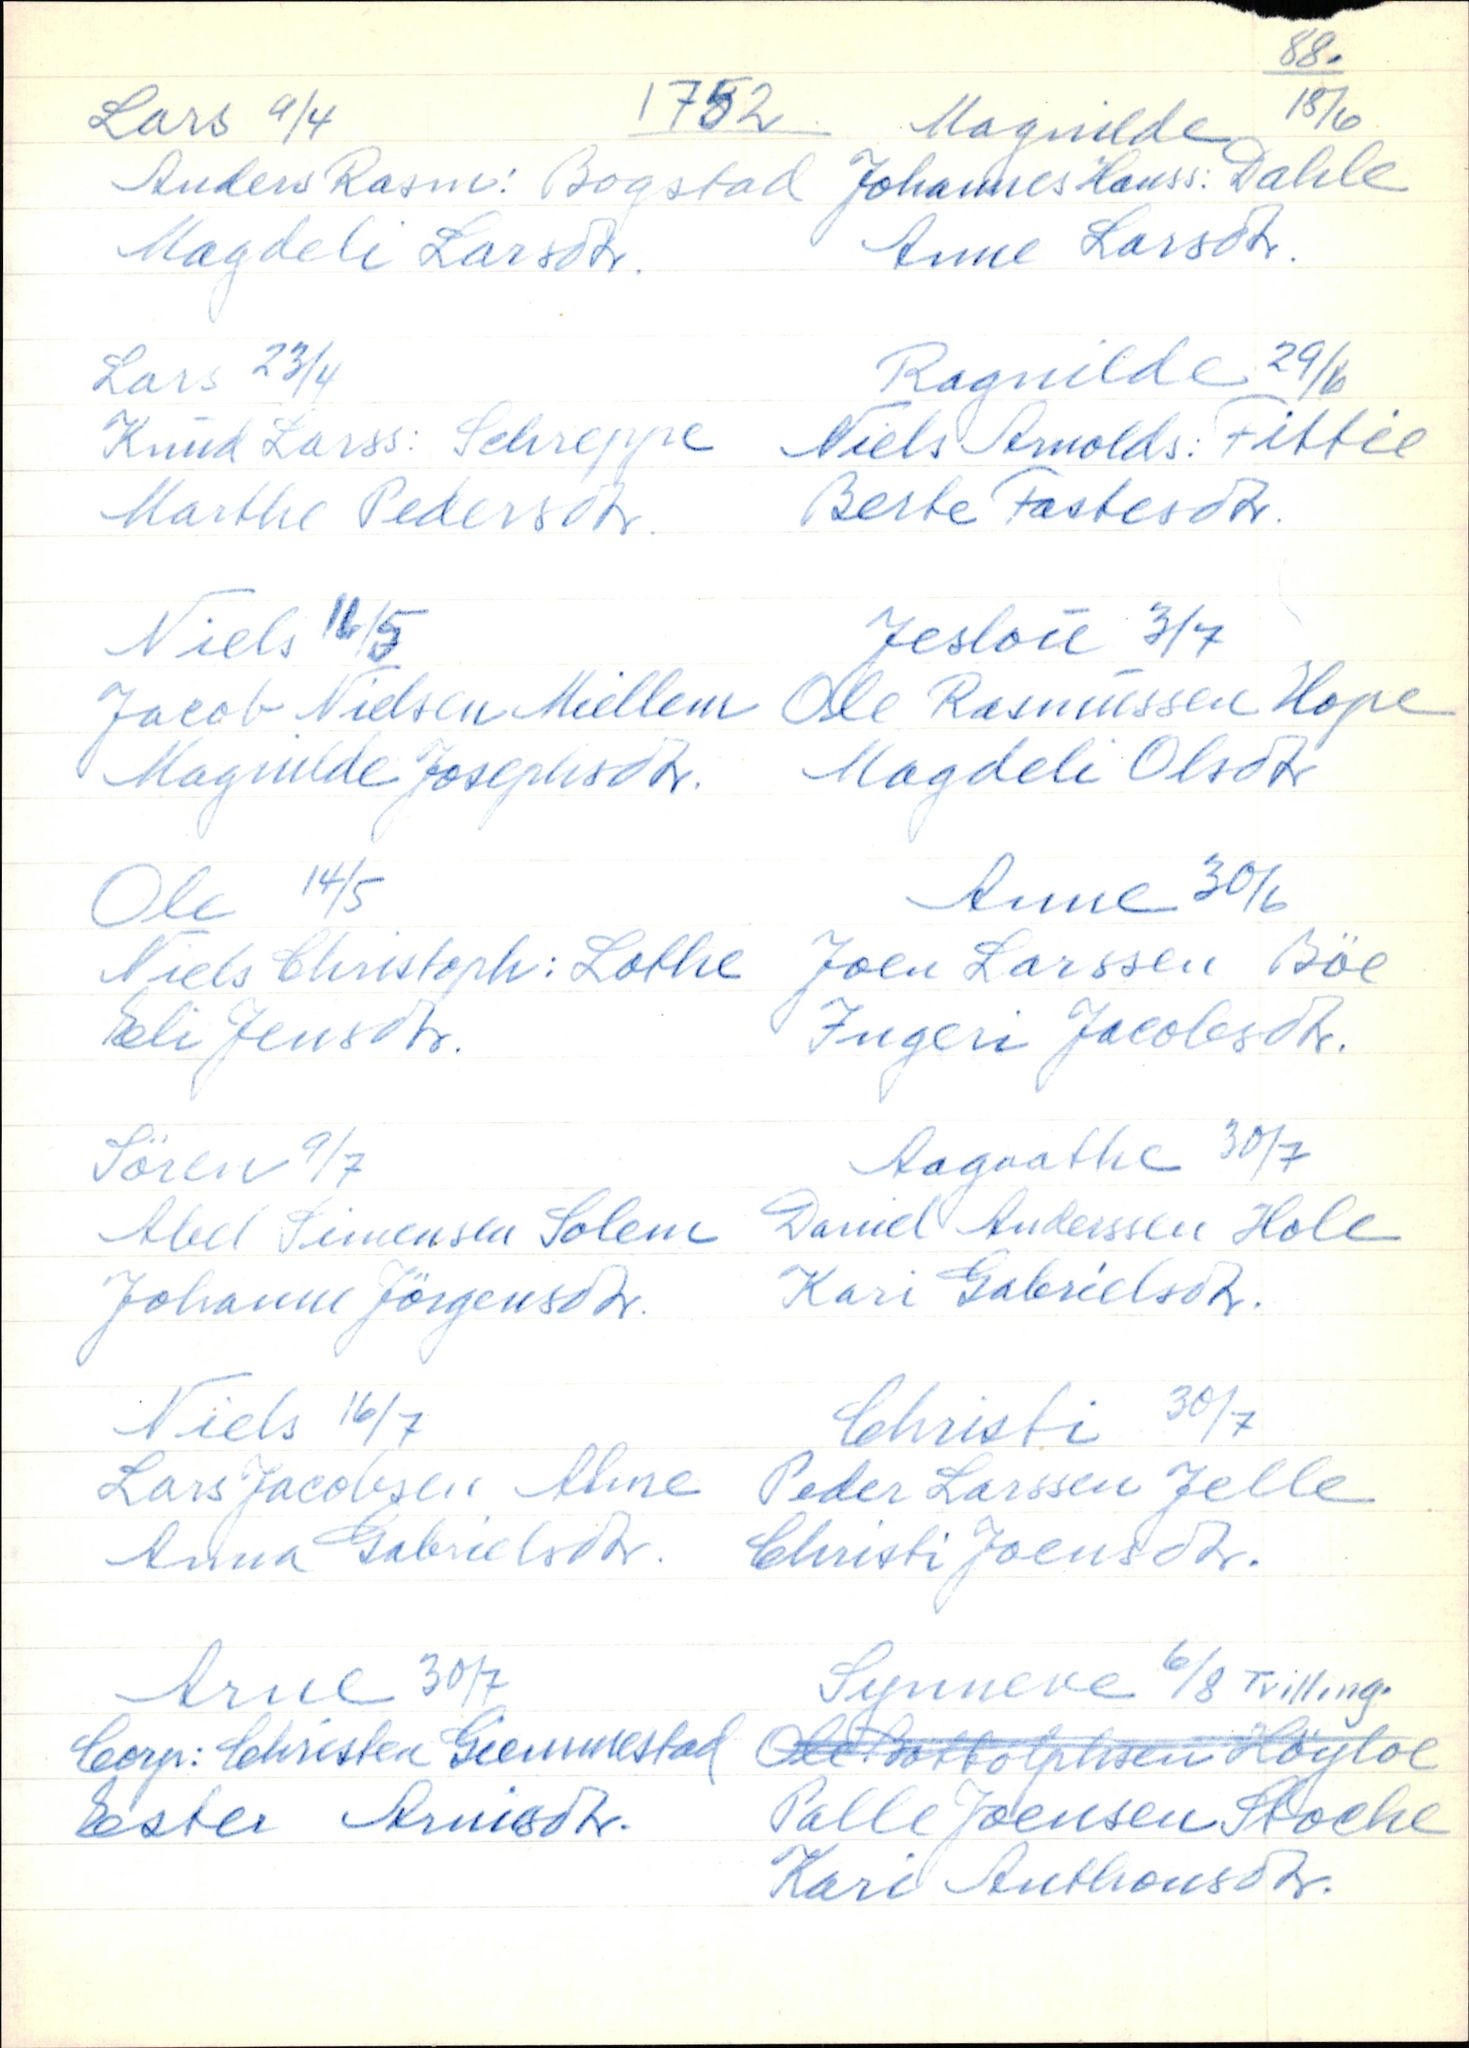 88.
1752
Lars 9/4
Anders Rasm: Bogstad
Magdeli Larsdtr.
Lars 23/4
Knūd Larss: Schreppe
Marthe Pedersdtr.
Niels 16/5
Jacob Nielsen Miellem
Magnilde Josephsdtr.
Ole 14/5
Niels Christoph: Lothe
Eli Jensdtr.
Sören 9/7
Abel Simensen Solem
Johanne Jörgensdtr.
Niels 16/7
Lars Jacobsen Ahne
Anna Gabrielsdtr.
Arne 30/7
Corp: Christen Giemmestad
Ester Arnisdtr.
Magnilde 18/6
Johannes Hanss: Dahle
Anne Larsdtr.
Ragnilde 29/6
Niels Arnolds: Fittie
Berte Fastesdtr.
Jesloū 3/7
Ole Rasmūssen Hope
Magdeli Olsdtr
Anne 30/6
Joen Larssen Böe
Ingeri Jacobsdtr.
Aagaathe 30/7
Daniel Anderssen Hole
Kari Gabrielsdtr.
Christi 30/7
Peder Larssen Jelle
Christi Joensdtr.
Synneve 6/8 Tvilling.
Ole Bottolphsen Höyloe
Palle Joensen Stoche
Kari Anthonsdtr.